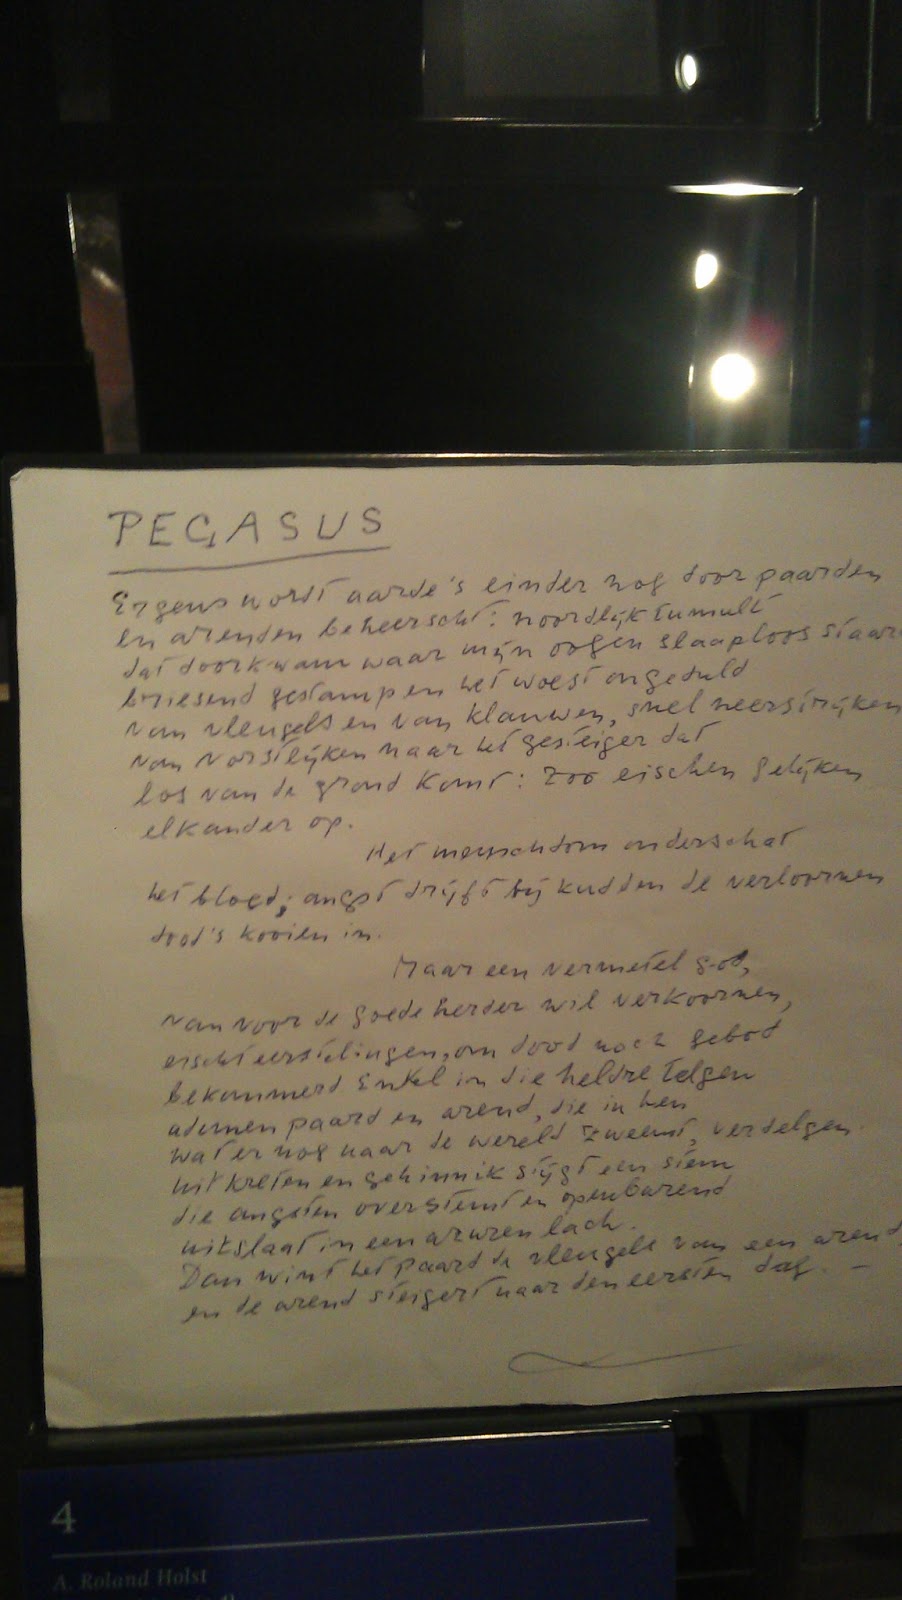 PEGASUS
Ergens wordt aarde's einder nog door paarden
en arenden beheerscht: noordlijk tumult
dat doorkwam waar mijn oogen slaaploos staar
briesend gestamp en het woest ongeduld
van vleugels en van klauwen, snel neerstrijken
van vorstlijken naar het gesteiger dat
los van de grond komt: zoo eischen gelijken
elkander op.
Het menschdom onderschat
het bloed; angst drijft bij kudden de verloornen
dood's kooien in.
Maar een vermetel god,
van voor de goede herder wil verkoornen,
eischt eerstelingen, om dood noch gebod
bekommerd. Enkel in die heldre telgen
ademen paard en arend, die in hen
wat er nog naar de wereld zweemt, verdelgen.
uit kreten en gehinnik stijgt een stem
die angsten overstemt en openbarend
uitslaat in een azuren lach.
Dan wint het paard de vleugels van een arend
en de arend steigert naar den eersten dag. –
4
A. Roland Holst